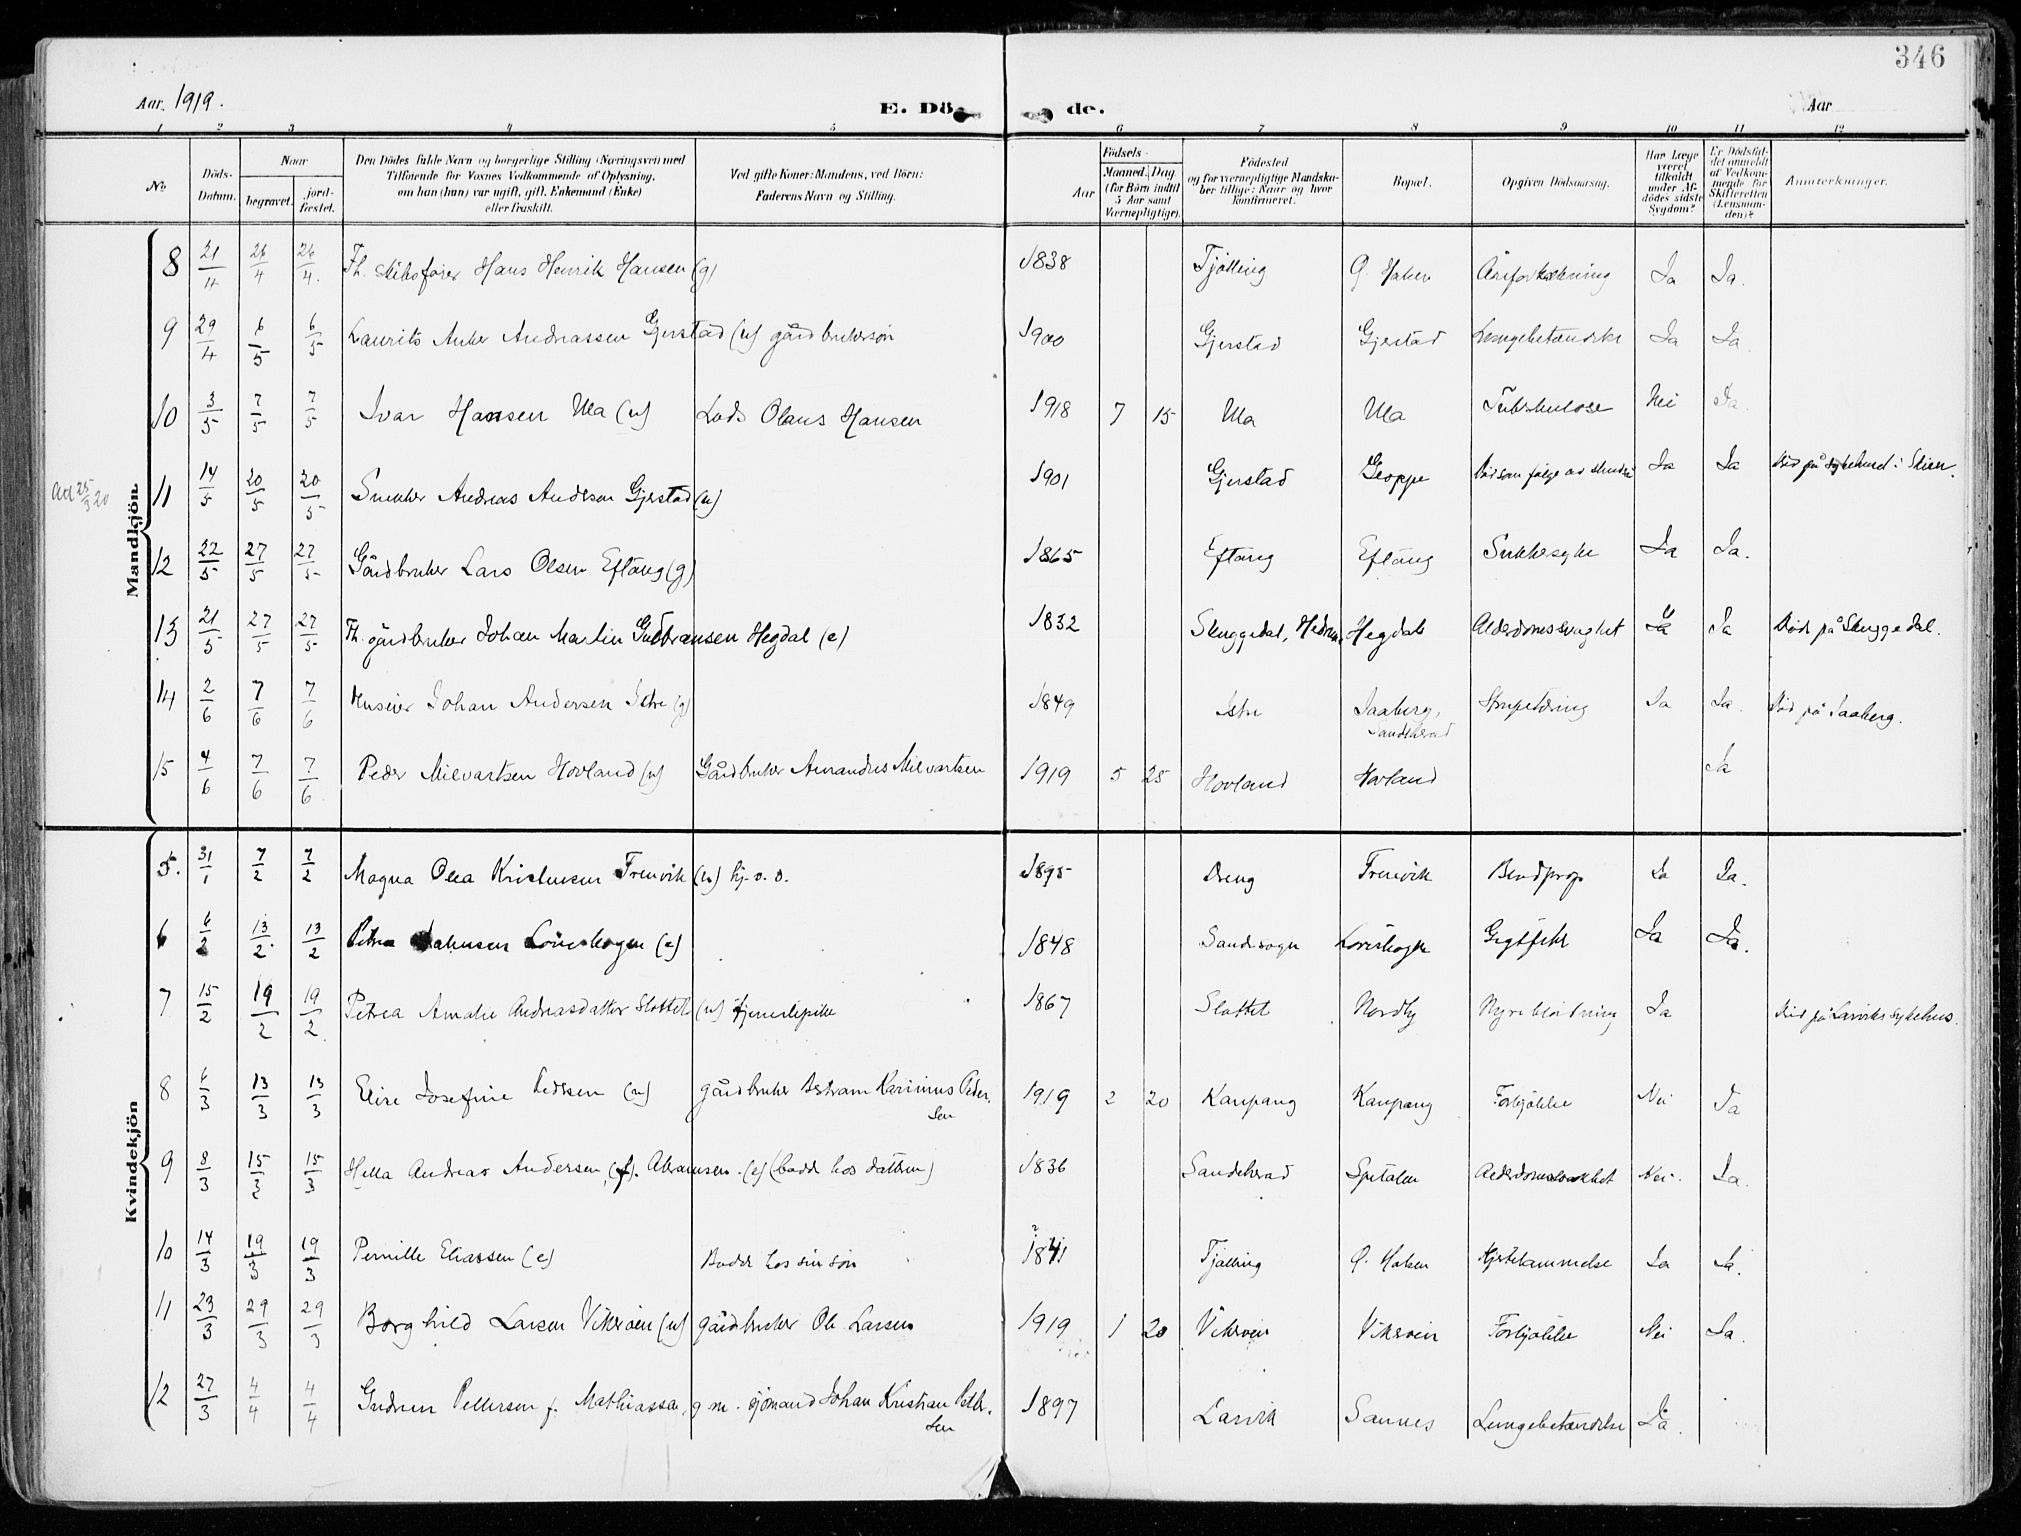 346
Aar 1919.
E. Dö de.
Aar
1 2 3 4 5 6 7 8 9 10 11 12
No
Döds-Datum.
Naar
begravet.
jord-fæstet.
Den Dödes fulde Navn og borgerlige Stilling (Næringsvei) med
Tilföiende for Voxnes Vedkommende af Oplysning,
om han (hun) var ugift, gift, Enkemand (Enke)
eller fraskilt.
Ved gifte Koner: Mandens, ved Börn:
Faderens Navn og Stilling.
Födsels-
Aar
Maaned. Dag
(for Börn indtil
5 Aar samt
Værnepligtige).
Födested
og for værnepligtige Mandska-
ber tillige: Naar og hvor
konfirmeret.
Bopæl.
Opgiven Dödsaarsag.
Har Læge
været
tilkaldt
under Af-
dödes sidste
Sygdom?
Er Dödsfal-
det anmeldt
af Vedkom-
mende for
Skifteretten
(Lensman-
den)?
Anmærkninger.
Mandkjön.
8 21/4 26/4 26/4. Th. Hans Henrik Hansen (g) 1838 Tjölling Ö. Halsen Åreforkalkning Ja Ja.
9 29/4 6/5 6/5 Laurits Anker Andreassen Gjerstad (u) gårdbrukersön 1900 Gjerstad Gjerstad Lungebetændelse Ja Ja.
10 3/5 7/5 7/5 Ivar Hansen Ula (u) Lods Olaus Hansen 1918 7 15 Ula Ula Tuberkulose Nei Ja.
11 14/5 20/5 20/5 Snekker Andreas Andersen Gjerstad (u) 1901 Gjerstad Geoppe Död som følge av Ja Ja Död på sykehuset i Skien.
12 22/5 27/5 27/5 Gårdbruker Lars Olsen Eftang (g) 1865 Eftang Eftang Sukkersyke Ja Ja.
13 21/5 27/5 27/5 Fh. gårdbruker Johan Martin Gulbransen Hegdal (e) 1832 Skuggedal, Hedrum Hegdal Alderdomssvaghet Ja Ja Död på Skuggedal.
14 2/6 7/6 7/6 Huseier Johan Andersen Istre (g) 1849 Istre Jaaberg, Sandeherad Strupetæring Ja Ja. Död på Jaaberg.
15 4/6 7/6 7/6. Peder Milvartsen Hovland (u) Gårdbruker Amandus Milvartsen 1919 5 25 Hovland Hovland Ja
Kvindekjön
5. 31/1 7/2 7/2 Magna Olea Kristensen Fremvik (u) hj. v. o. 1895 Dreng Fremvik Blodprop Ja Ja.
6 6/2 13/2. 13/2 Petra Løveskogen (e) 1848 Sandesogn Løveskogen Gigtfeber Ja Ja.
7 15/2 19/2 19/2. Petrea Amalie Andreasdatter Slottet (u) tjenestepike 1867 Slottet Nordby Nyreblødning Ja Död på Larviks sykehus.
8 6/3 13/3 13/3 Elise Josefine Pedersen (u) gårdbruker Karinius Peder-
sen 1919 2 20 Kaupang Kaupang Forkjølelse Nei Ja
9 8/3 15/3 15/3 Hella Andrea Andersen, (f). Abramsen. (e) (bodde hos datteren) 1836 Sandeherad Spitalen Alderdomssvakhet Nei. Ja.
10 14/3 19/3 19/3 Pernille Eliassen (e) Bodde hos sin sön 1841 Tjølling Ö. Halsen Hjertelammelse Ja Ja.
11 23/3 29/3 29/3 Borghild Larsen Viksøien (u) gårdbruker Ole Larsen 1919 1 20 Viksøien Viksøien Forkjølelse Nei Ja.
12 27/3 4/4 4/4 Gudrun Pettersen f. Mathiassen, g. m. sjømand Johan Kristian Petter-
sen 1897 Larvik Sannes Lungebetændelse Ja.